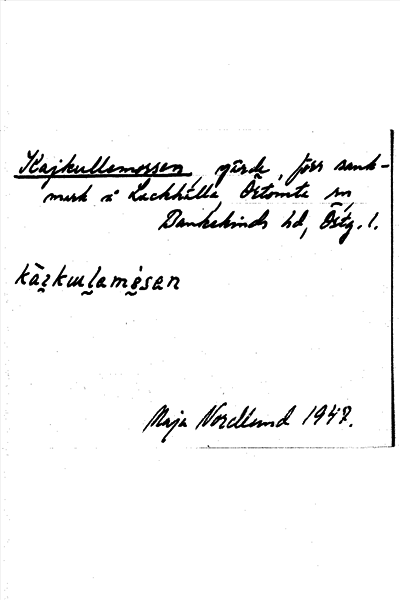 Kajkullemossen, gärde, förr sank-
mark i Lackhälla Östomte sn
Bankekinds hd, Östg. l.
kāịkɯḷamö̀sən
Maja Nordlund 1947.